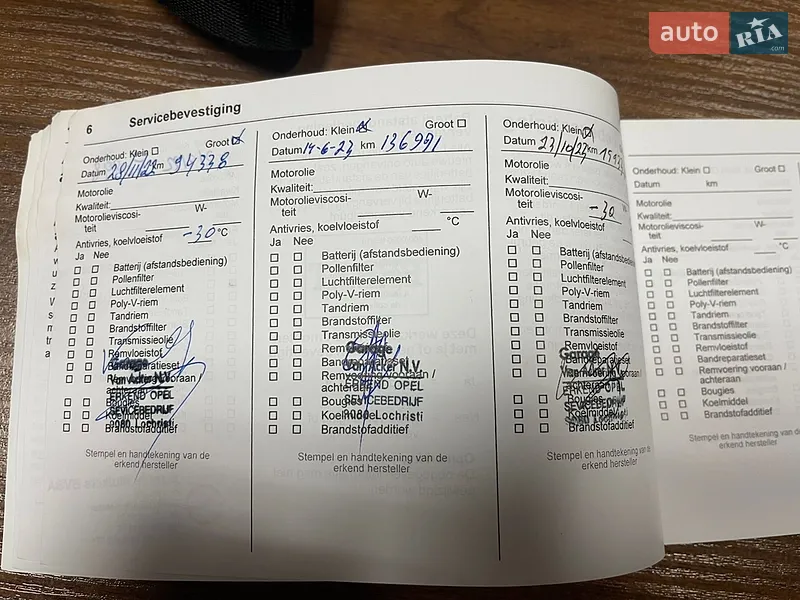 auto RIA .com
6 Servicebevestiging
Onderhoud: Klein Groot
Datum 28/11/22 km 94378
Motorolie
Kwaliteit:
Motorolieviscosi-
teit W-
Antivries, koelvloeistof -30 °C
Ja Nee
Batterij (afstandsbediening)
Pollenfilter
Luchtfilterelement
Poly-V-riem
Tandriem
Brandstoffilter
Transmissieolie
Remvloeistof
Bandreparatieset
Remvoering vooraan /
achteraan
Bougies
Koelmiddel
Brandstofadditief
Garage
Van Acker N.V.
ERKEND OPEL
SEVICEBEDRIJF
9080 Lochristi
Stempel en handtekening van de
erkend hersteller
Onderhoud: Klein Groot
Datum 14-6-23 km 136991
Motorolie
Kwaliteit:
Motorolieviscosi-
teit W-
Antivries, koelvloeistof °C
Ja Nee
Batterij (afstandsbediening)
Pollenfilter
Luchtfilterelement
Poly-V-riem
Tandriem
Brandstoffilter
Transmissieolie
Remvloeistof
Bandreparatieset
Remvoering vooraan /
achteraan
Bougies
Koelmiddel
Brandstofadditief
Garage
Van Acker N.V.
ERKEND OPEL
SEVICEBEDRIJF
9080 Lochristi
Stempel en handtekening van de
erkend hersteller
Onderhoud: Klein
Datum 23/10/23 km
Motorolie
Kwaliteit:
Motorolieviscosi-
teit
Antivries, koelvloeistof -30
Ja Nee
Batterij (afstandsbediening)
Pollenfilter
Luchtfilterelement
Poly-V-riem
Tandriem
Brandstoffilter
Transmissieolie
Remvloeistof
Bandreparatieset
Remvoering vooraan /
achteraan
Bougies
Koelmiddel
Brandstofadditief
ERKEND OPEL
SEVICEBEDRIJF
9080 Lochristi
Stempel en handtekening van de
erkend hersteller
Onderhoud: Klein Groot
Datum km
Motorolie
Kwaliteit:
Motorolieviscosi-
teit W-
Antivries, koelvloeistof °C
Ja Nee
Batterij (afstandsbediening)
Pollenfilter
Luchtfilterelement
Poly-V-riem
Tandriem
Brandstoffilter
Transmissieolie
Remvloeistof
Bandreparatieset
Remvoering vooraan /
achteraan
Bougies
Koelmiddel
Brandstofadditief
Stempel en handtekening van de
erkend hersteller